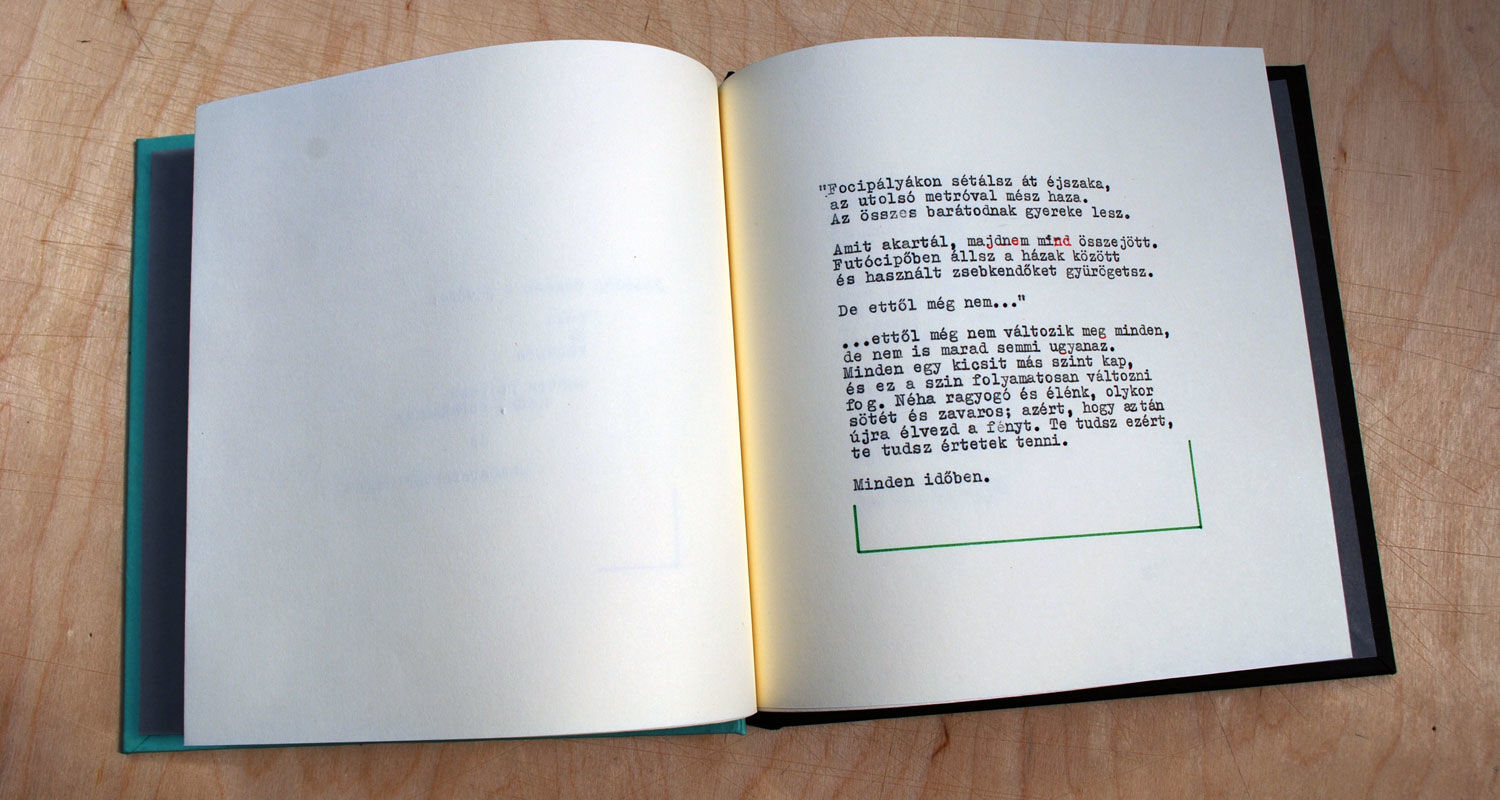 "Focipályákon sétálsz át éjszaka,
az utolsó metróval mész haza.
Az összes barátodnak gyereke lesz.
Amit akartál, majdnem mind összejött.
Futócipőben állsz a házak között
és használt zsebkendőket gyürögetsz.
De ettől még nem..."
...ettől még nem változik meg minden,
de nem is marad semmi ugyanaz.
Minden egy kicsit más szint kap,
és ez a szin folyamatosan változni
fog. Néha ragyogó és élénk, olykor
sötét és zavaros; azért, hogy aztán
újra élvezd a fényt. Te tudsz ezért,
te tudsz értetek tenni.
Minden időben.